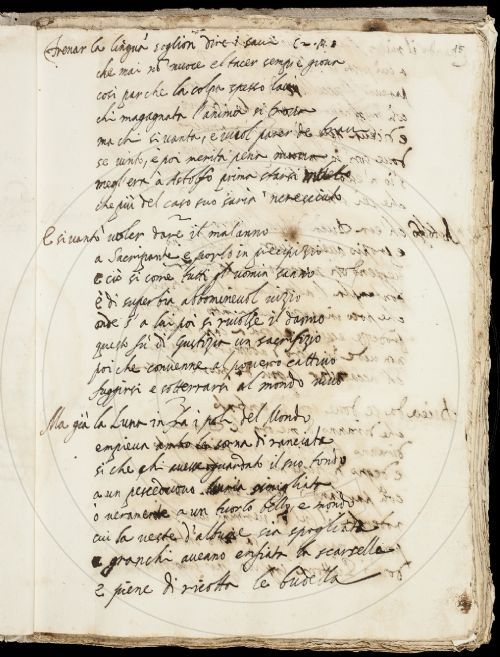 15
frenar la lingua soglion dire i savi
che mai nõ nuoce e'l tacer sempre giova
così par che la colpa spesso lavi
chi magagnata l'anima si trova
ma chi si vanta, e vuol parer de
se vinto, e poi merita pena
megl'era à Astolfo prima starsi
che più del caso suo saria increscuto
E si vantò voler dare il malanno
a Sacripante e porlo in precipizio
e ciò si come tutti gl'uomin sanno
è di superbia abbominevol vizio
onde s'a lui poi si rivolse il danno
questo fù di giustizia un sacrifizio
poi che convenne al povero cattivo
fuggirsi e sotterrarsi al mondo vivo
Ma già la Luna in trà i poli del Mondo
empieva la soma di ranciata
si che chi avesse guardato il suo tondo
a un pesceduovo l'avria simigliata
ò veramente a un tuorlo bello e mondo
cui la veste d'albume sia spogliata
e granchi aveano enfiata la scarsella
e piene di ricotta le budella